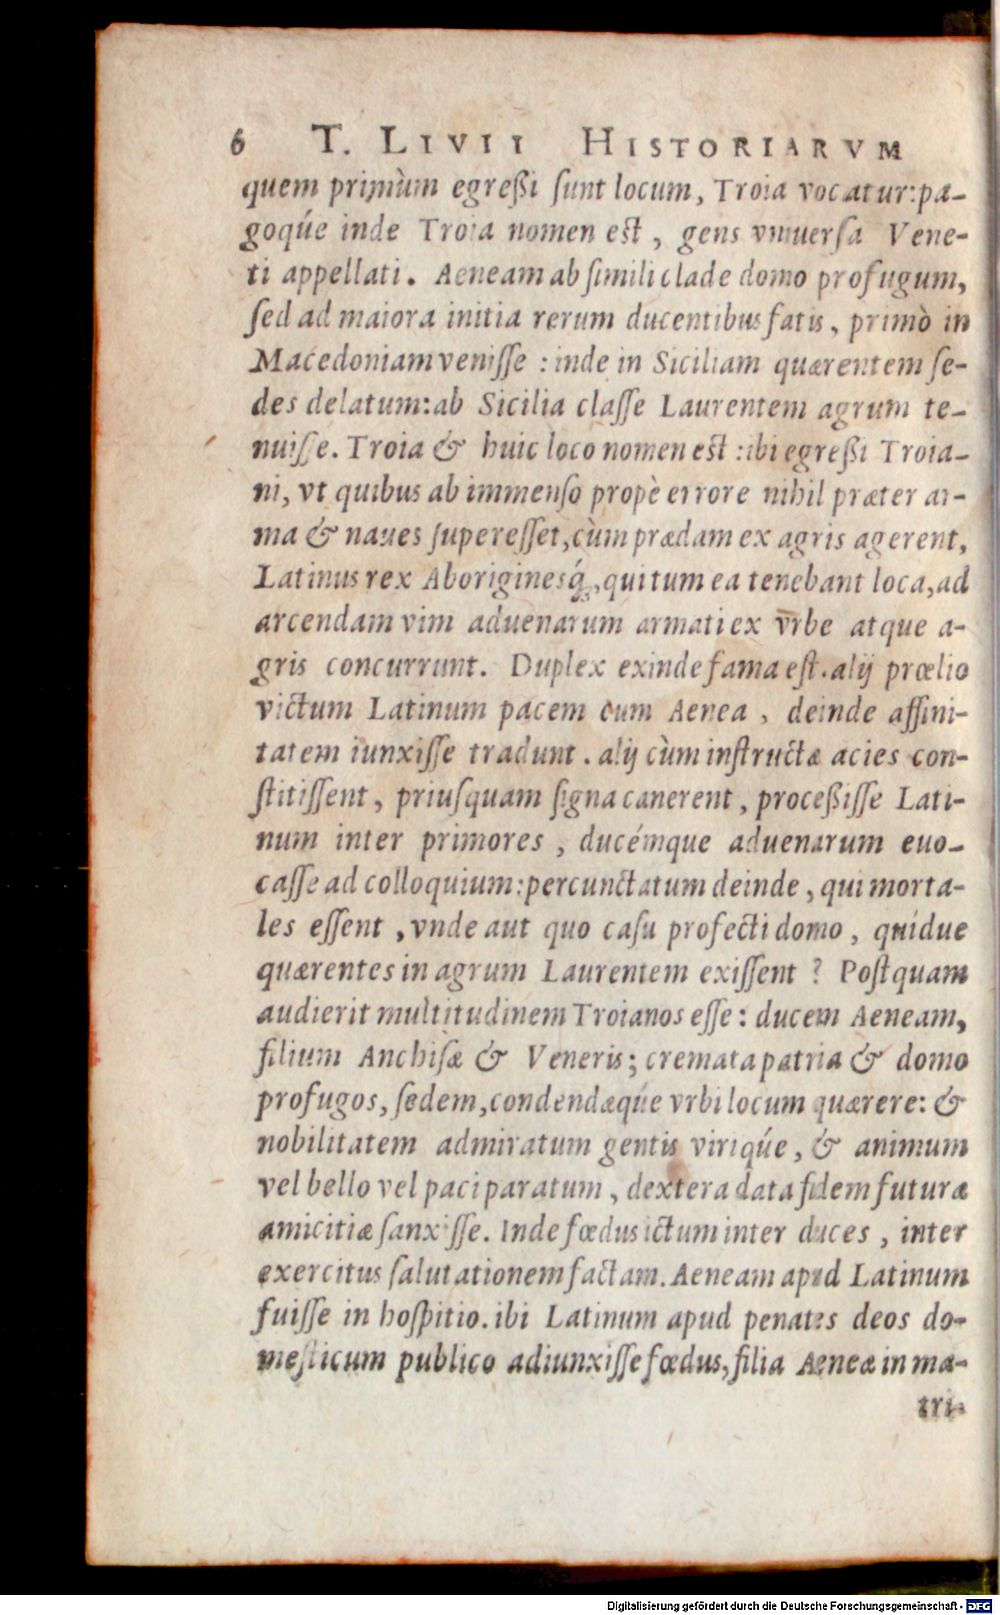 6 T. LIVII HISTORIARVM
quem primùm egreßi ſunt locum, Troia vocatur: pa-
goqúe inde Troia nomen est, gens vniuerſa Vene-
ti appellati. Aeneam ab ſimili clade domo profugum,
ſed ad maiora initia rerum ducentibus fatis, primò in
Macedoniam veniſſe : inde in Siciliam quærentem ſe-
des delatum: ab Sicilia claſſe Laurentem agrum te-
nuiſſe. Troia & huic loco nomen est : ibi egreßi Troia-
ni, vt quibus ab immenſo propè errore nihil præter ar-
ma & naues ſupereſſet, cùm prædam ex agris agerent,
Latinus rex Aboriginesq́;, qui tum ea tenebant loca, ad
arcendam vim aduenarum armati ex vrbe atque a-
gris concurrunt. Duplex exinde fama eſt. alij prœlio
victum Latinum pacem cum Aenea, deinde affini-
tatem iunxiſſe tradunt. alij cùm inſtructæ acies con-
ſtitiſſent, priuſquam ſigna canerent, proceßiſſe Lati-
num inter primores, ducémque aduenarum euo-
caſſe ad colloquium: percunctatum deinde, qui morta-
les eſſent, vnde aut quo caſu profecti domo, quidue
quærentes in agrum Laurentem exiſſent ? Poſtquam
audierit multitudinem Troianos eſſe: ducem Aeneam,
filium Anchiſæ & Veneris; cremata patria & domo
profugos, ſedem, condendæqúe vrbi locum quærere: &
nobilitatem admiratum gentis viriqúe, & animum
vel bello vel paci paratum, dextera data fidem futuræ
amicitiæ ſanxiſſe. Inde fœdus ictum inter duces, inter
exercitus ſalutationem factam. Aeneam apud Latinum
fuiſſe in hoſpitio. ibi Latinum apud penates deos do-
meſticum publico adiunxiſſe fœdus, filia Aeneæ in ma-
tri-
Digitalisierung gefördert durch die Deutsche Forschungsgemeinschaft - DFG